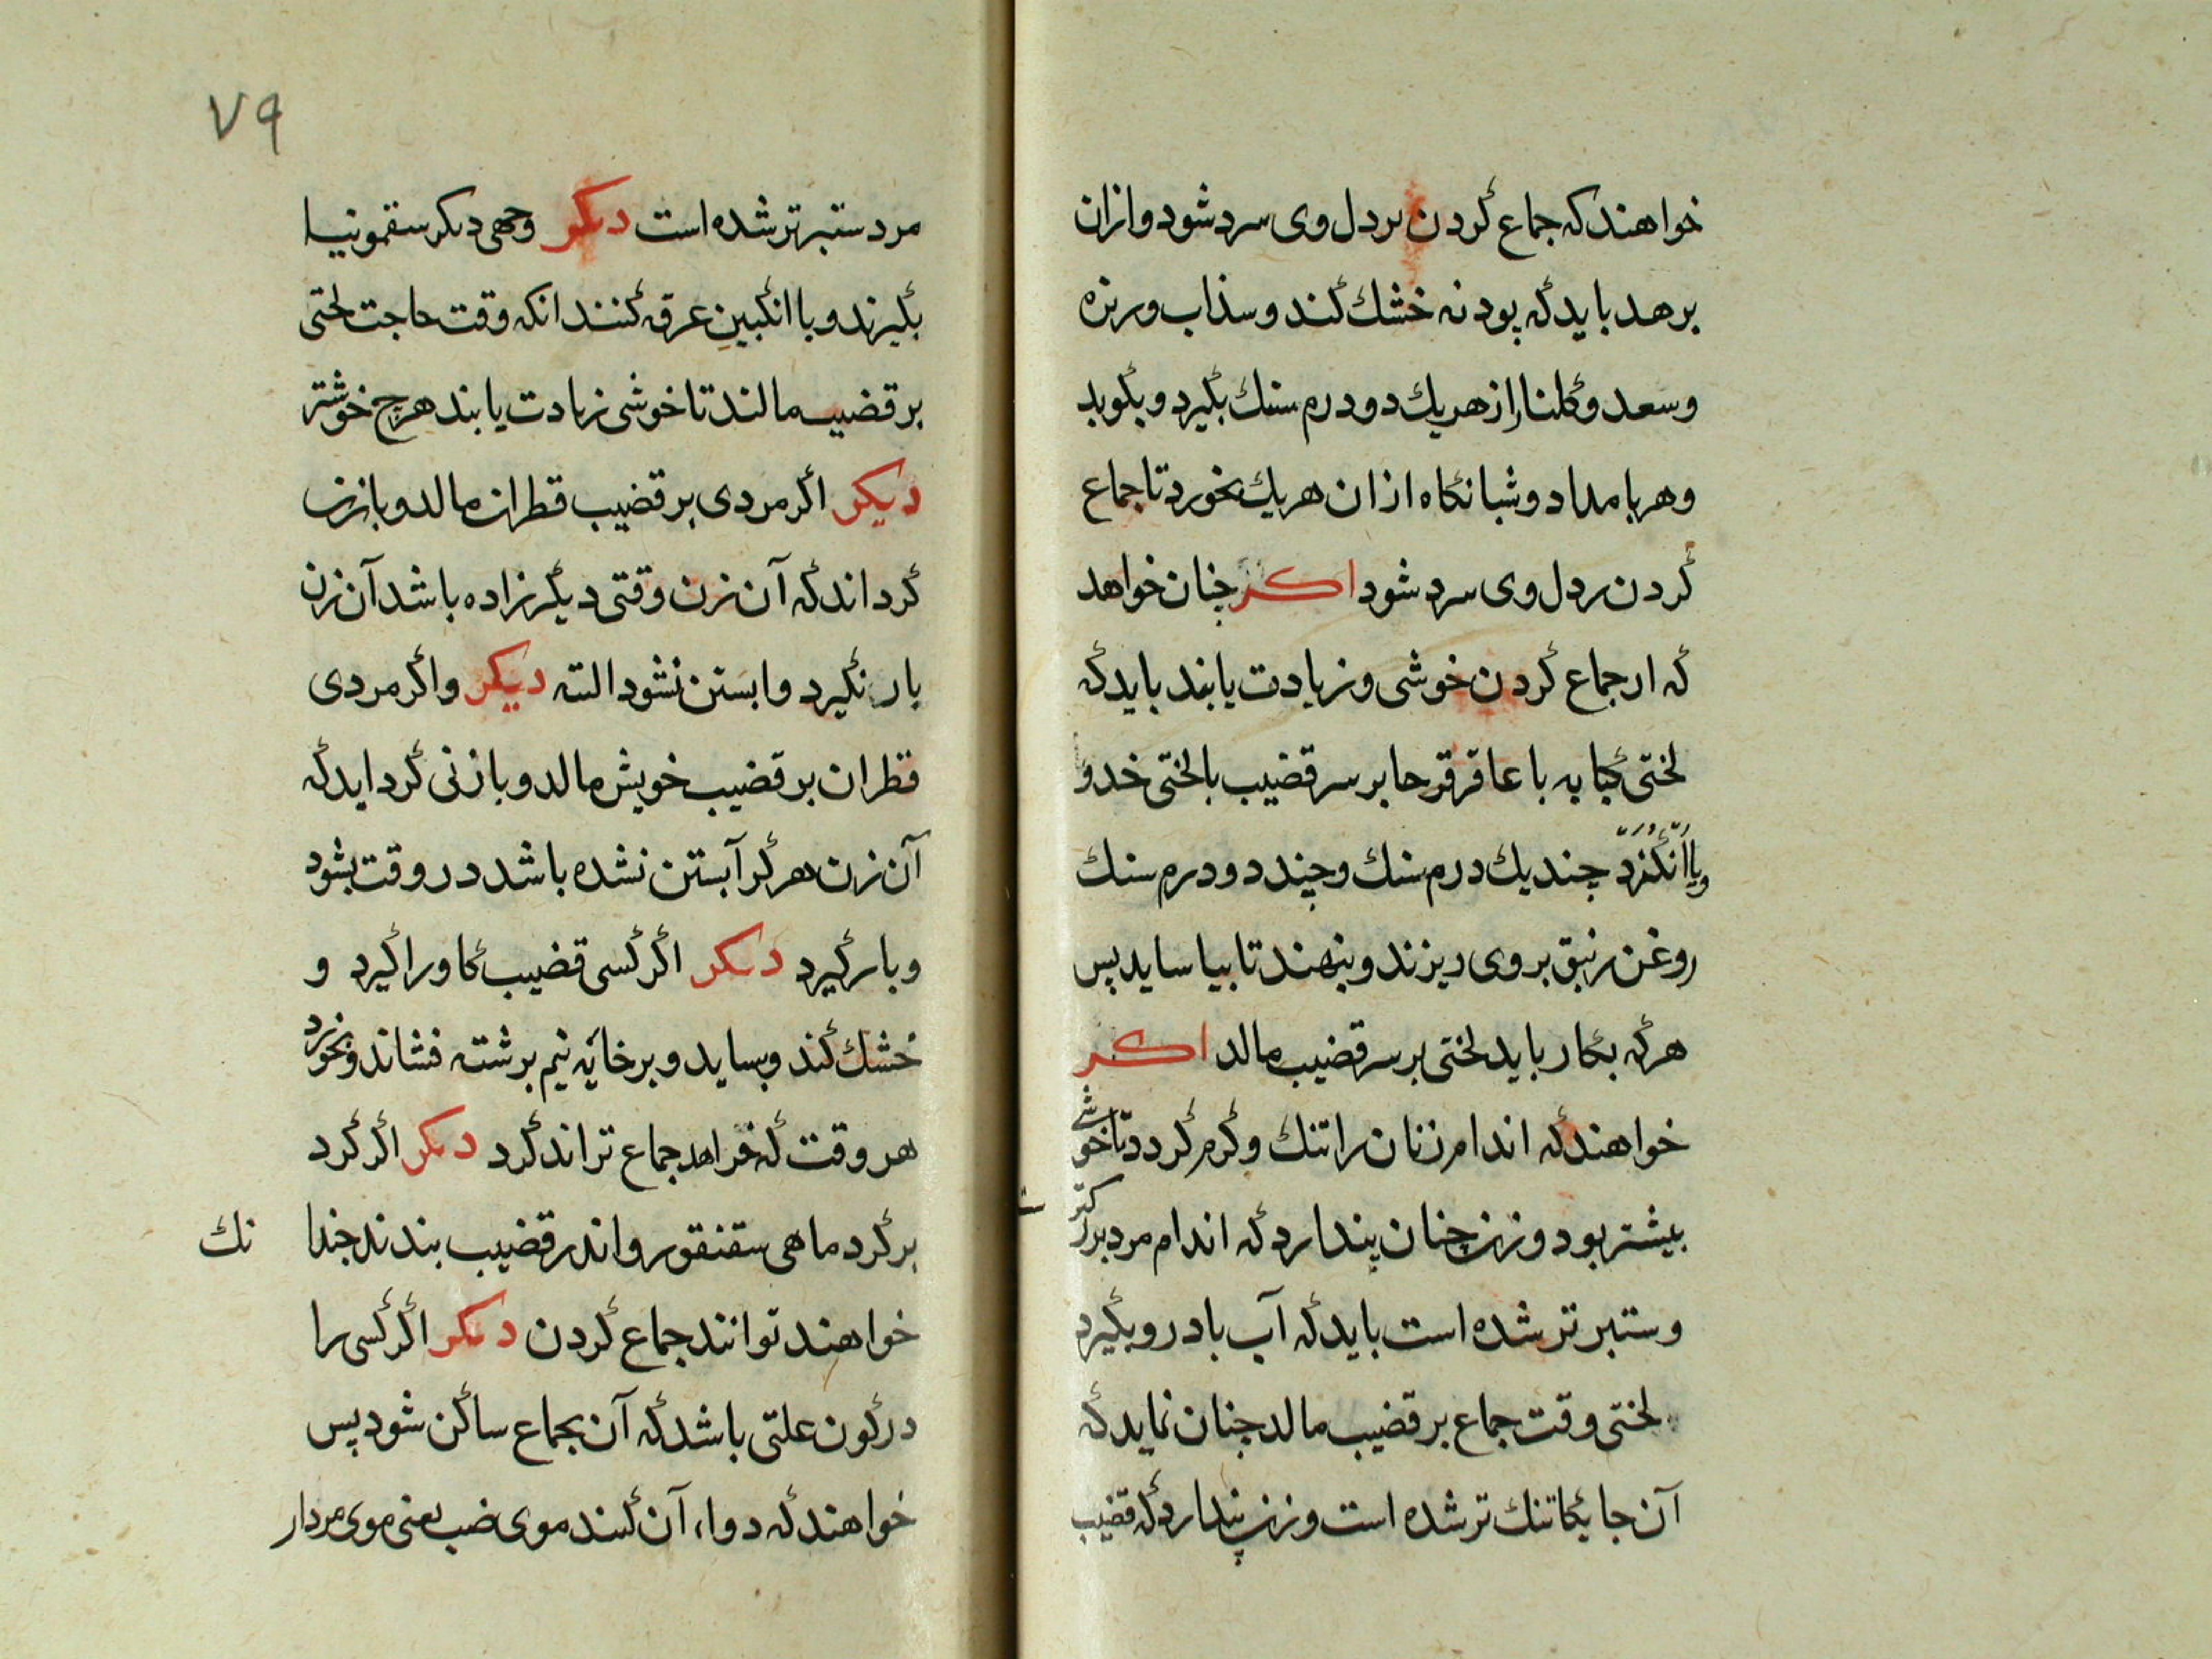 خواهند که جماع کردن بردل وی سرد شود و ازان
برهد باید که پودنه خشك کند و سذاب و بزره
وسعد و کلنار از هریك دو درم سنك بکیرد و بکوبد
وهر بامداد و شبانکاه ازان هریك بخورد تا جماع
کردن بردل وی سرد شود اکر چنان خواهد
که از جماع کردن خوشی و زیادت یابند باید که
لختی کبابه با عاقرقرحا بر سر قضیب بالختی خدو
ویا انکزد چند یك درم سنك و چند دو درم سنك
روغن زنبق بروی ریزند و بنهند تا بیاساید پس
هرکه بکار باید لختی بر سر قضیب مالد اکر
خواهند که اندام زنان را تنك و کرم کردد تا خوشی
بیشتر بود و زن چنان پندارد که اندام مرد بزرکتر
و ستبر تر شده است باید که آب بادرو بکیرد
لختی وقت جماع بر قضیب مالد چنان نماید که
آن جایکا تنك تر شده است و زن پندارد که قضیب
٧٩
مرد ستبر تر شده است دیکر وجهی دیکر سقمونیا
بکیرند و با انکبین عرقه کنند انکه وقت حاجت لختی
بر قضیب مالند تا خوشی زیادت یابند هرچ خوشتر
دیکر اکر مردی بر قضیب قطران مالد و با زن
کرد اند که آن زن وقتی دیکر زاده باشد آن زن
بار نکیرد و ابستن نشود البته دیکر و اکر مردی
قطران بر قضیب خویش مالد و با زنی کرد اید که
آن زن هرکز آبستن نشده باشد در وقت بشود
و بار کیرد دیکر اکر کسی قضیب کاو را کیرد و
خشك کند و بساید و بر خایه نیم برشته فشاند و بخورد
هر وقت که خواهد جماع تواند کرد دیکر اکر کرد
بر کرد ماهی سقنقور و اندر قضیب بندند چندا نك
خواهند توانند جماع کردن دیکر اکر کسی را
در کون علتی باشد که آن بجماع ساکن شود پس
خواهند که دواء آن کنند موی ضب یعنی موی مردار